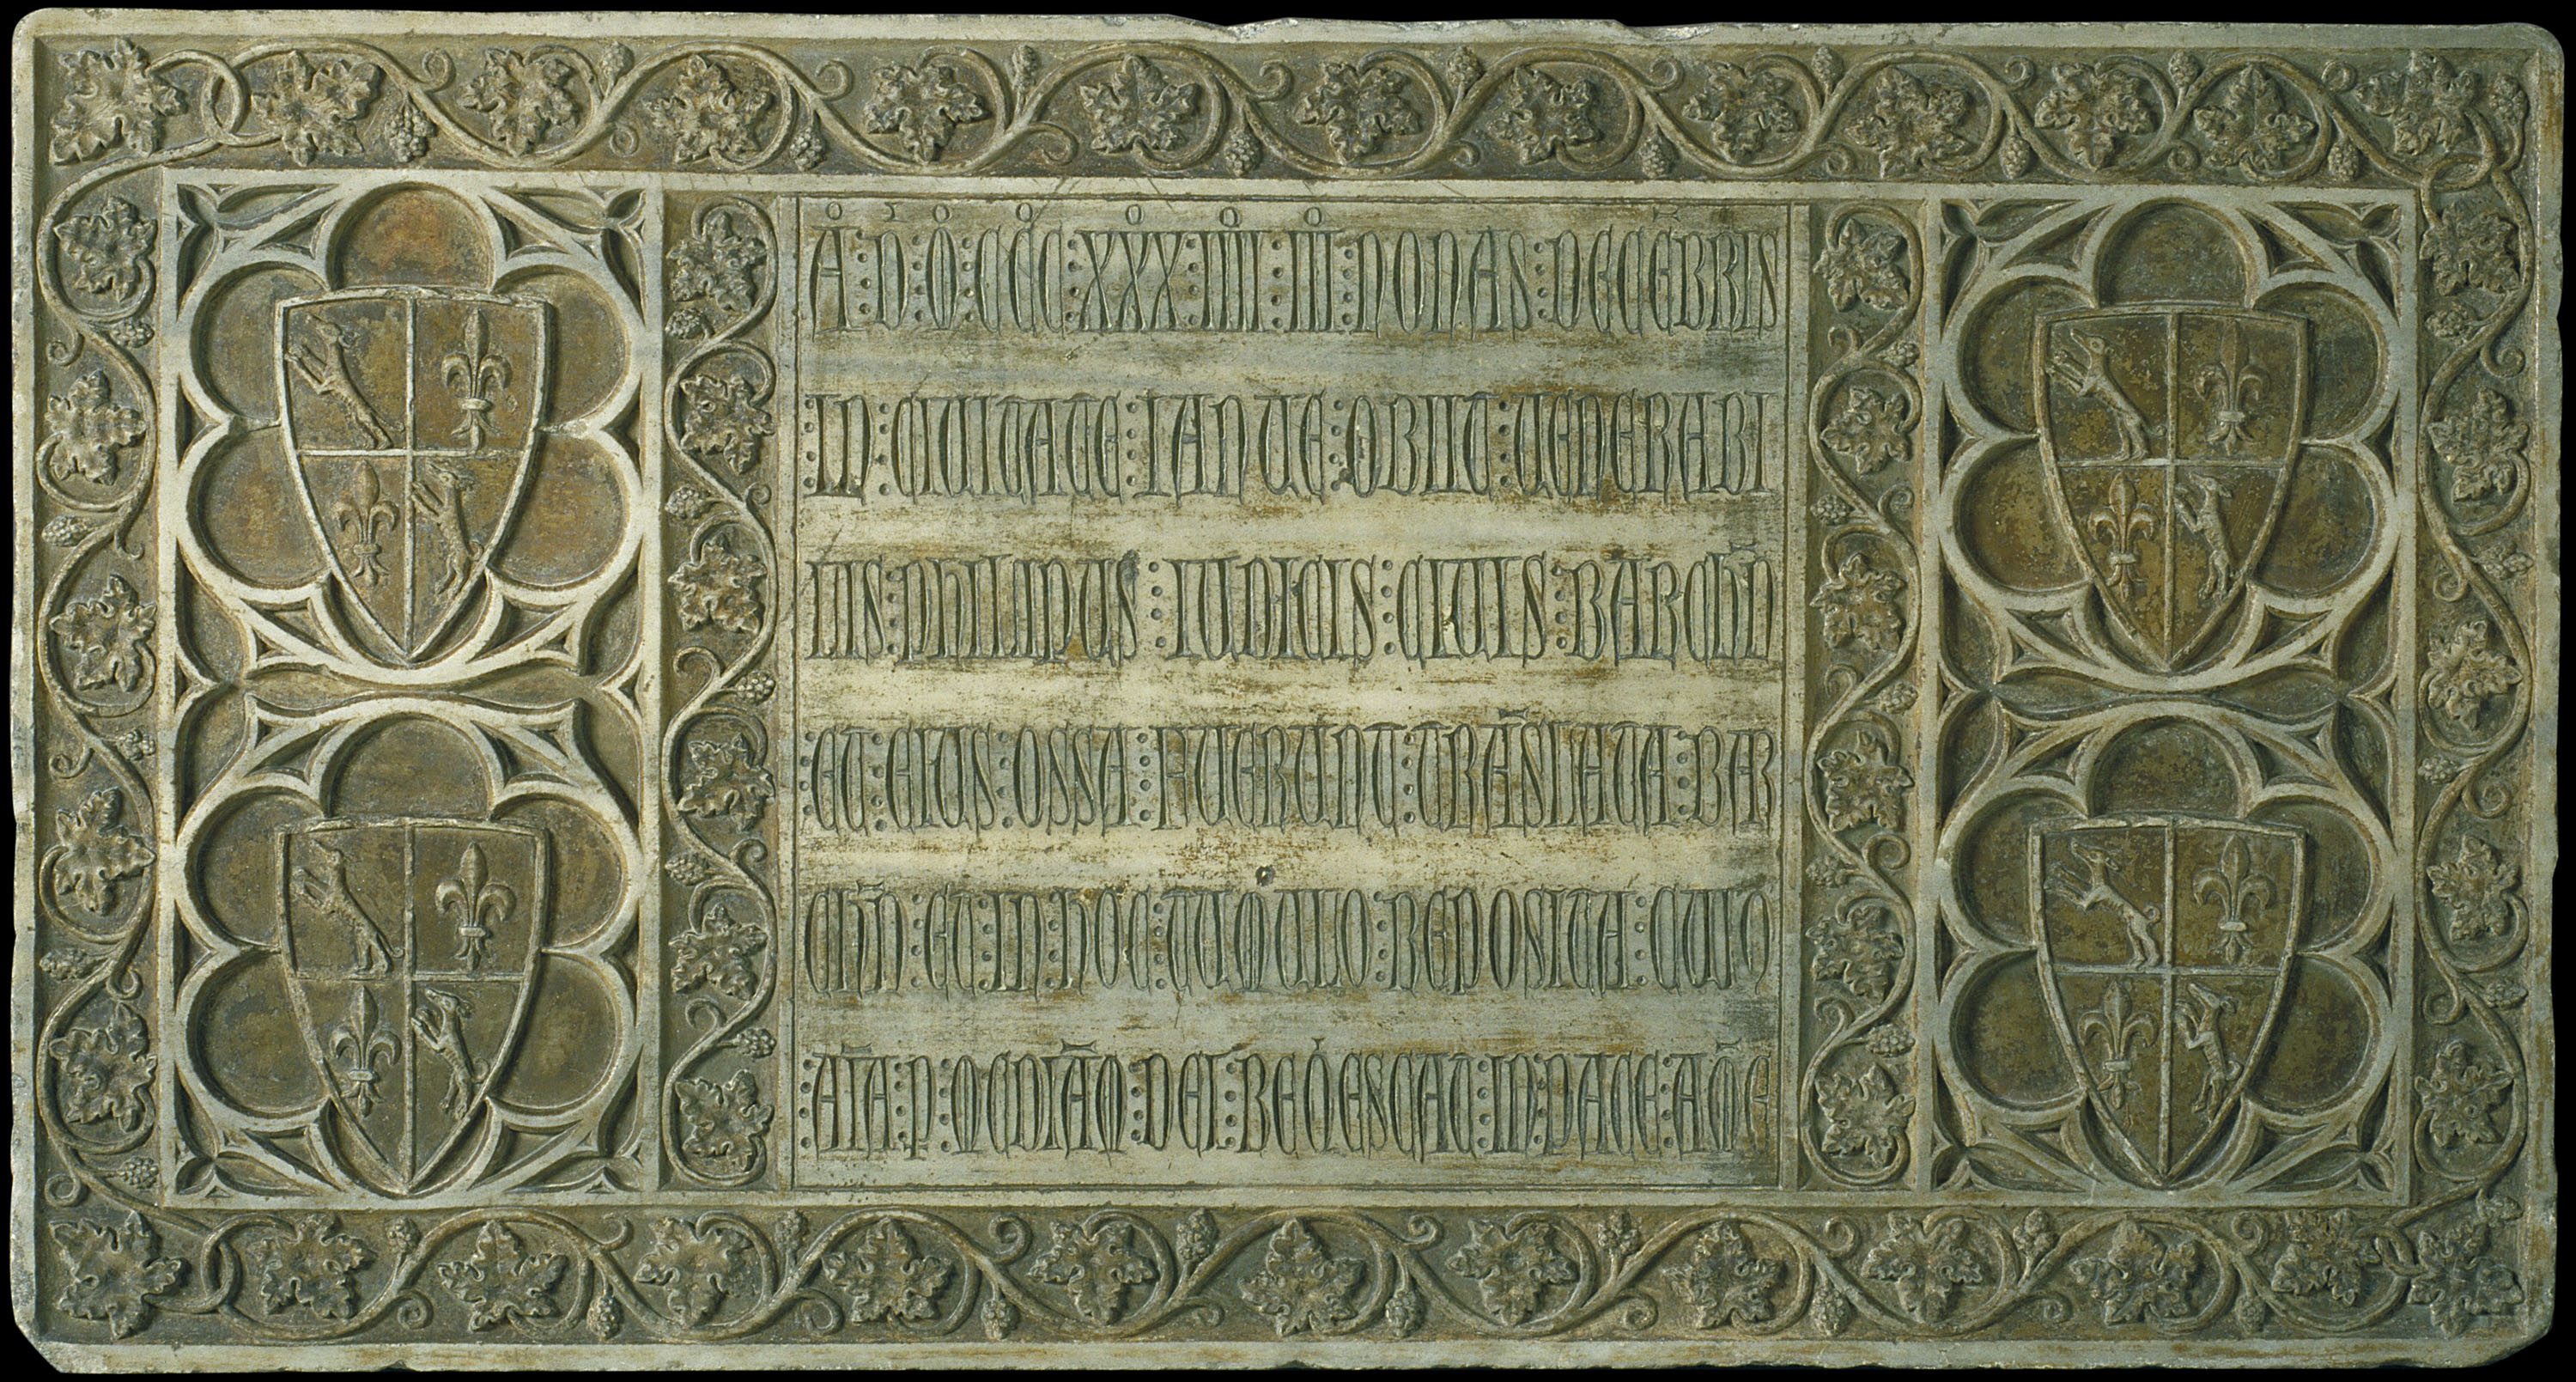 A : D : M : CCC : XXX : IIII : III : NONAS : DECEBRIS
IN : CIVITATE : IANUE : OBIIT : VENERABI
LIS : PHILIPUS : IUDICIS : CIVIS : BARCHN
ET : EIUS : OSSA : FUERUNT : TRASLATA : BAR
CHN : ET : IN : HOC : TUMULO : REPOSITA : CUIꝰ
AIA : P : MEDIAM : DEI : REQESCAT : IN : PACE : AME